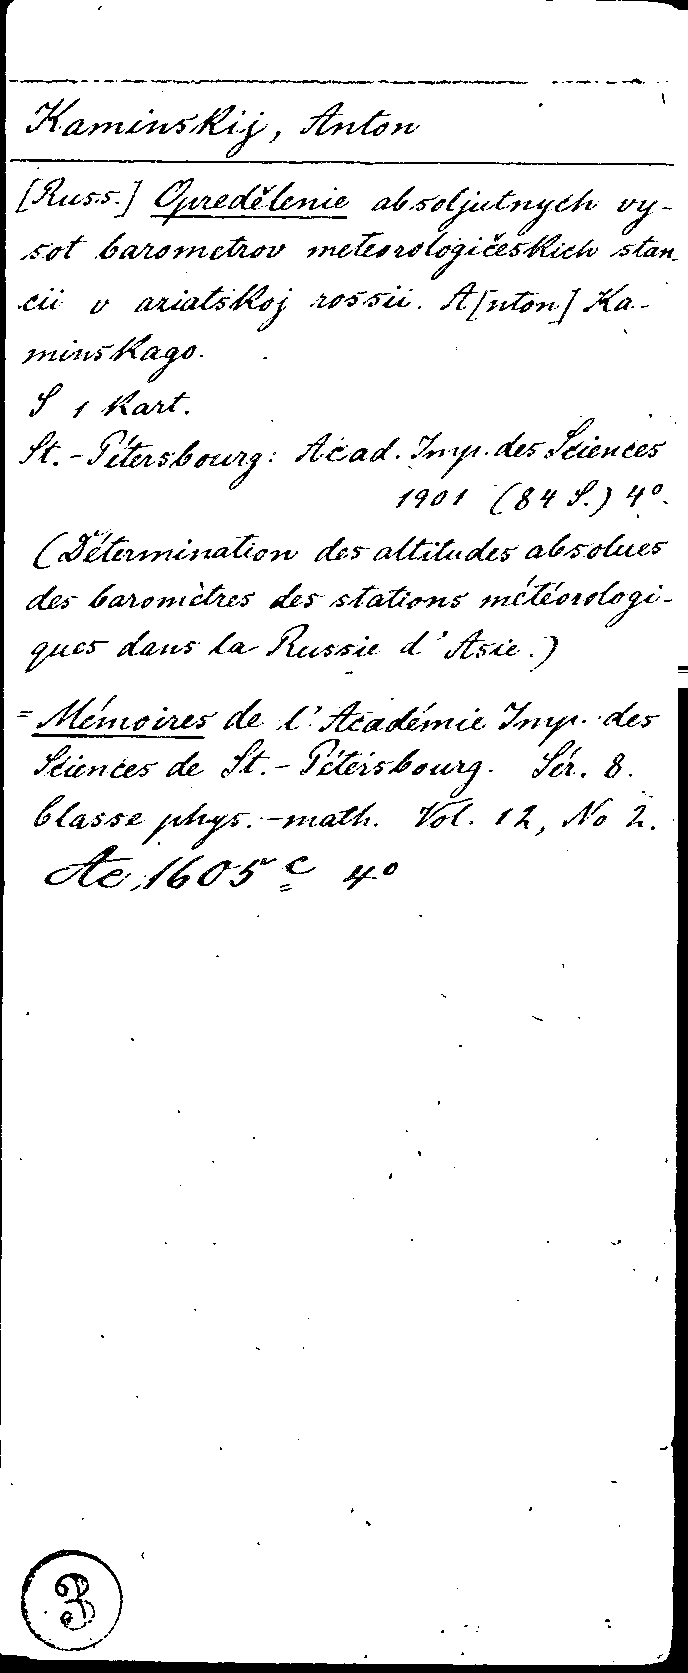 Kaminskij, Anton
[Russ.] Opredělenie absoljutnych vy-
sot barometrov meteorologičeskich stan-
cii v aziatskoj rossii. A[nton] Ka-
minskago.
S 1 Kart.
St.-Pétersbourg: Acad. Imp. des Sciences
1901 (84 S.) 4°.
(Détermination des altitudes absolues
des baromètres des stations météorologi-
ques dans la Russie d'Asie.)
= Mémoires de l'Académie Imp. des
Sciences de St.-Pétersbourg. Sér. 8.
Classe phys.-math. Vol. 12, No 2.
Ac 1605 c 4°
3